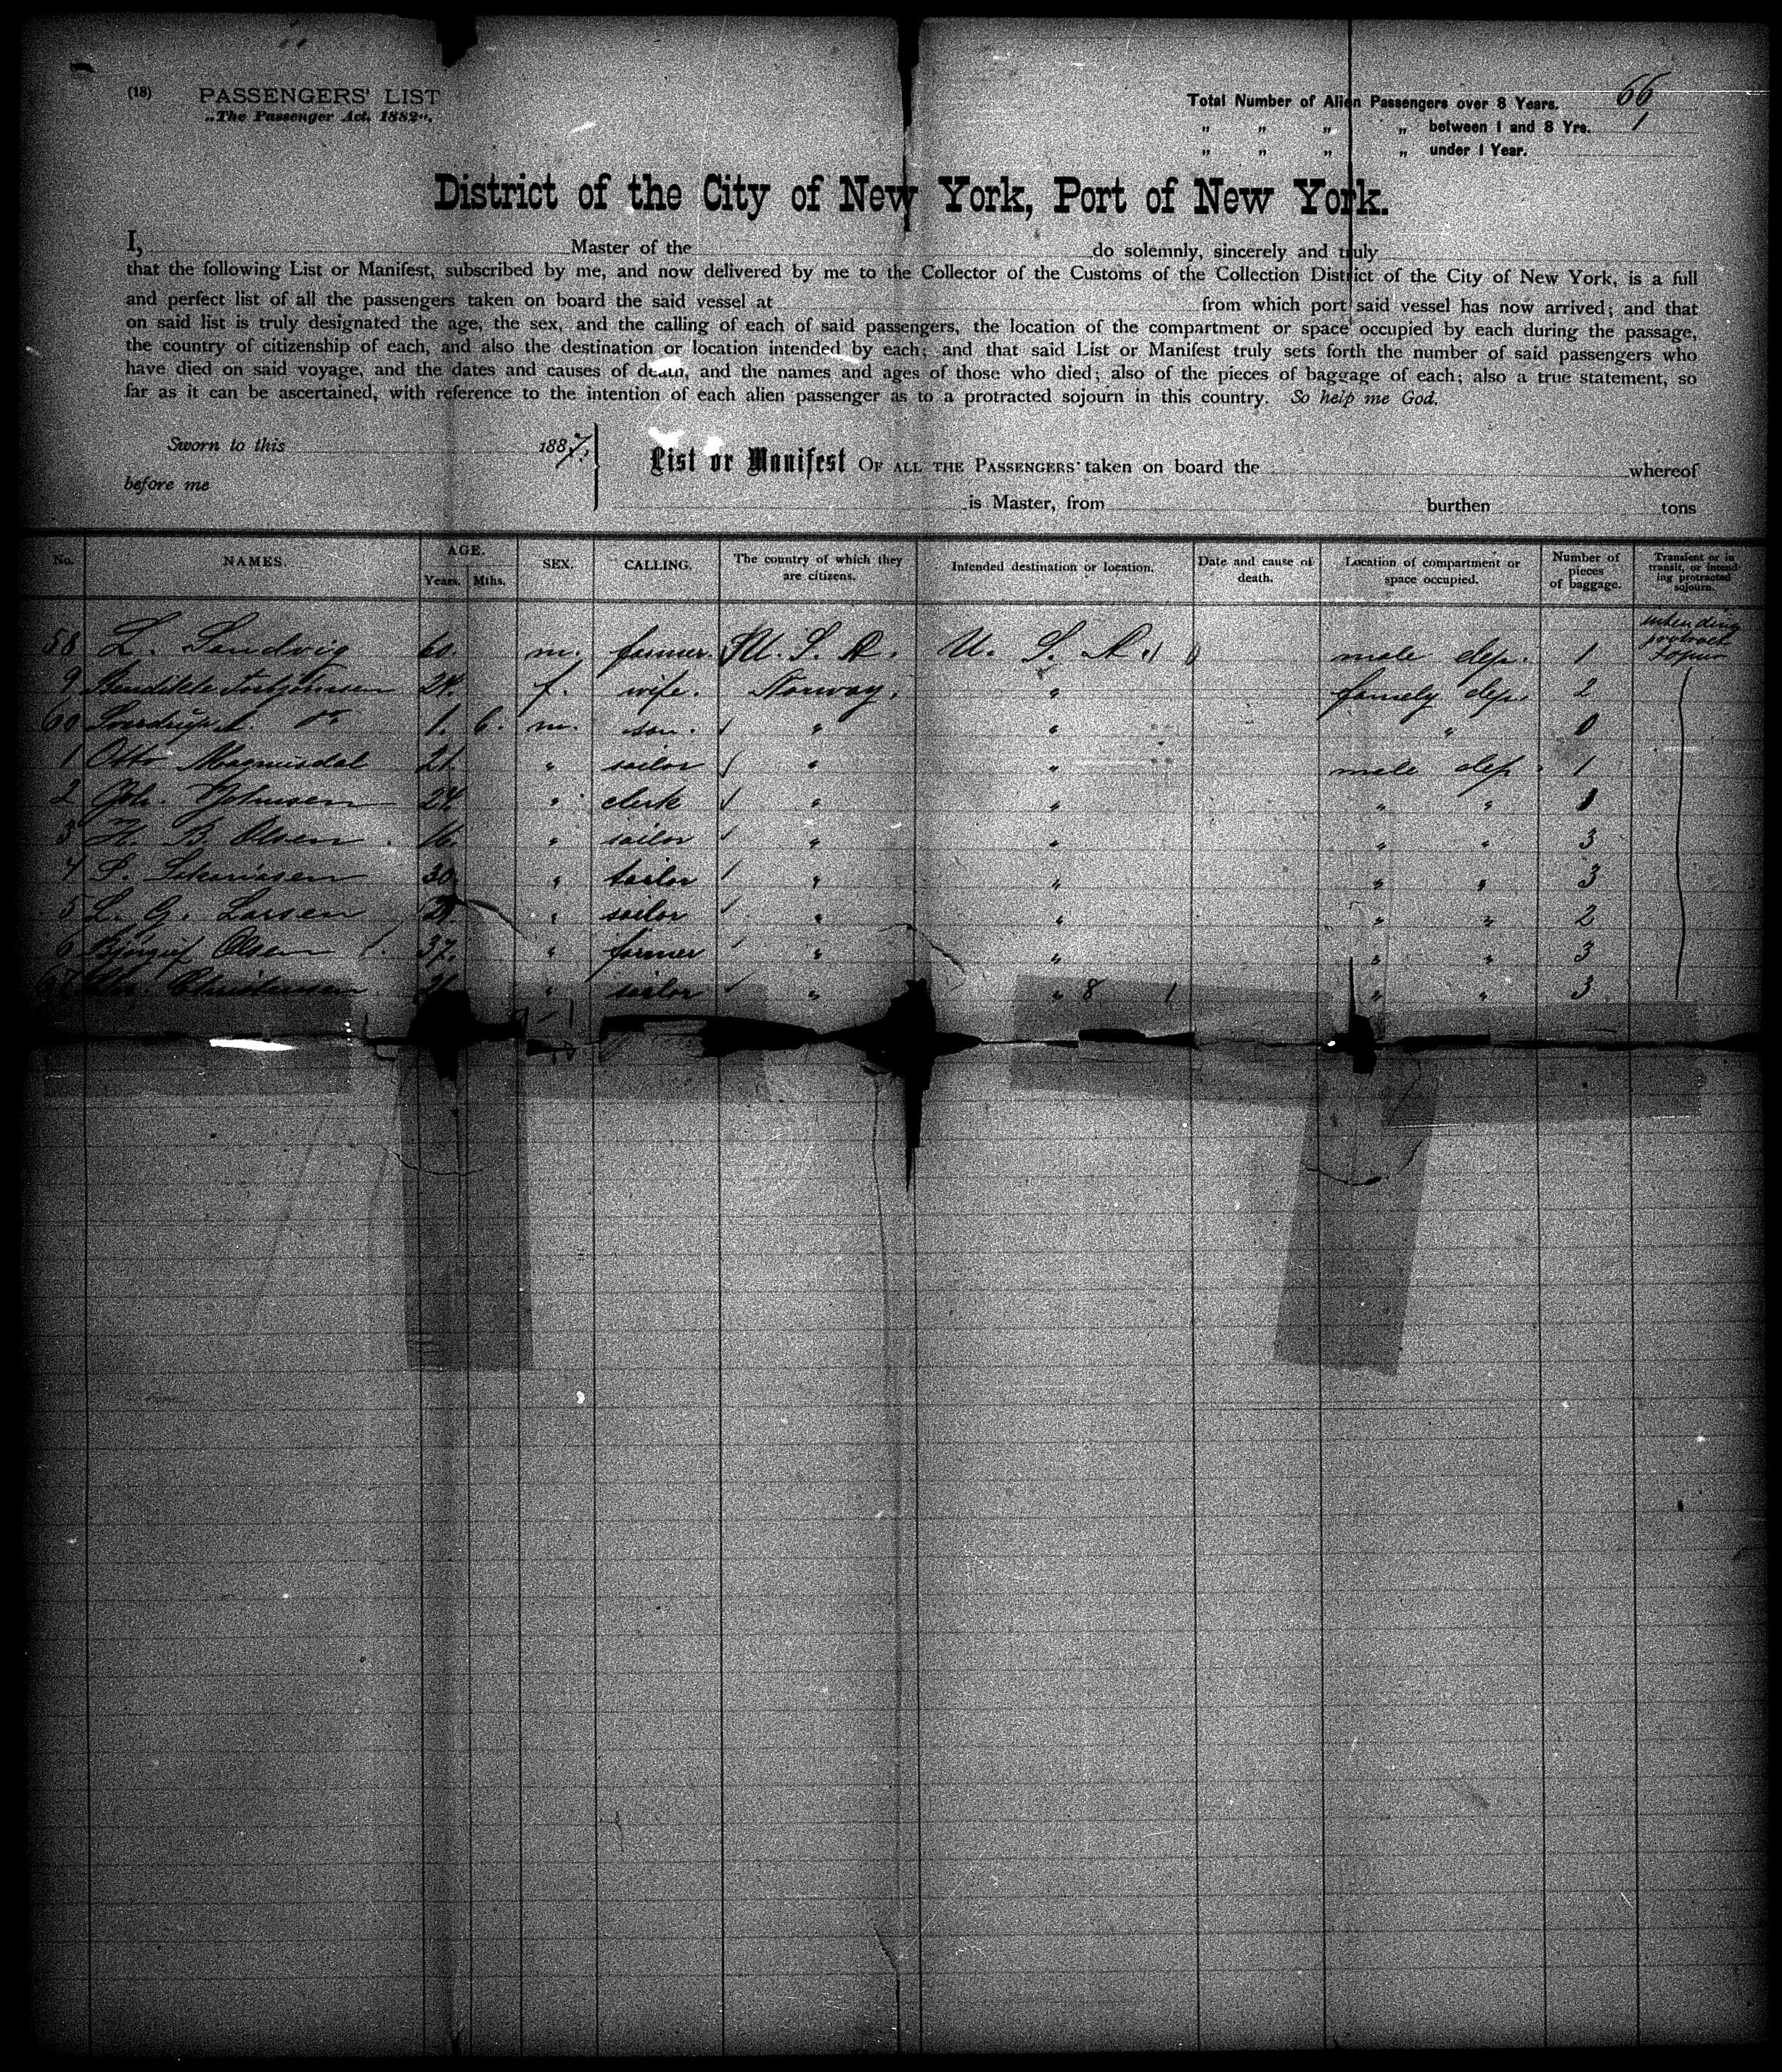 (18) PASSENGERS' LIST
„The Passenger Act, 1882".
Total Number of Alien Passengers over 8 Years. 66
„ „ „ „ between 1 and 8 Yrs. 1
„ „ „ „ under 1 Year.
District of the City of New York, Port of New York.
I, Master of the do solemnly, sincerely and truly
that the following List or Manifest, subscribed by me, and now delivered by me to the Collector of the Customs of the Collection District of the City of New York, is a full
and perfect list of all the passengers taken on board the said vessel at from which port said vessel has now arrived; and that
on said list is truly designated the age, the sex, and the calling of each of said passengers, the location of the compartment or space occupied by each during the passage,
the country of citizenship of each, and also the destination or location intended by each; and that said List or Manifest truly sets forth the number of said passengers who
have died on said voyage, and the dates and causes of death, and the names and ages of those who died; also of the pieces of baggage of each; also a true statement, so
far as it can be ascertained, with reference to the intention of each alien passenger as to a protracted sojourn in this country. So help me God.
Sworn to this 1887.
before me
List or Manifest OF ALL THE PASSENGERS' taken on board the whereof
is Master, from burthen tons
No. NAMES. AGE. Years. Mths. SEX. CALLING. The country of which they are citizens. Intended destination or location. Date and cause of death. Location of compartment or space occupied. Number of pieces of baggage. Transient or in transit, or intending protracted sojourn.
58 L. Sandvig 60. m. farmer. U. S. A. U. S. A. male dep. 1 intending
9 24. f. wife. Norway. " famely dep. 2
60 1. 6. m. son. " " " 0
1 Otto Magnusdal 21. " sailor " " male dep. 1
2 Joh. Johnsen 24. " clerk " " " " 1
3 H. B. Olsen 16. " sailor " " " " 3
4 S. 30. " tailor " " " " 3
5 L. G. Larsen " sailor " " " " 2
6 Olsen 37. " farmer " " " " 3
67 Christensen " sailor " " 8 1 " " 3